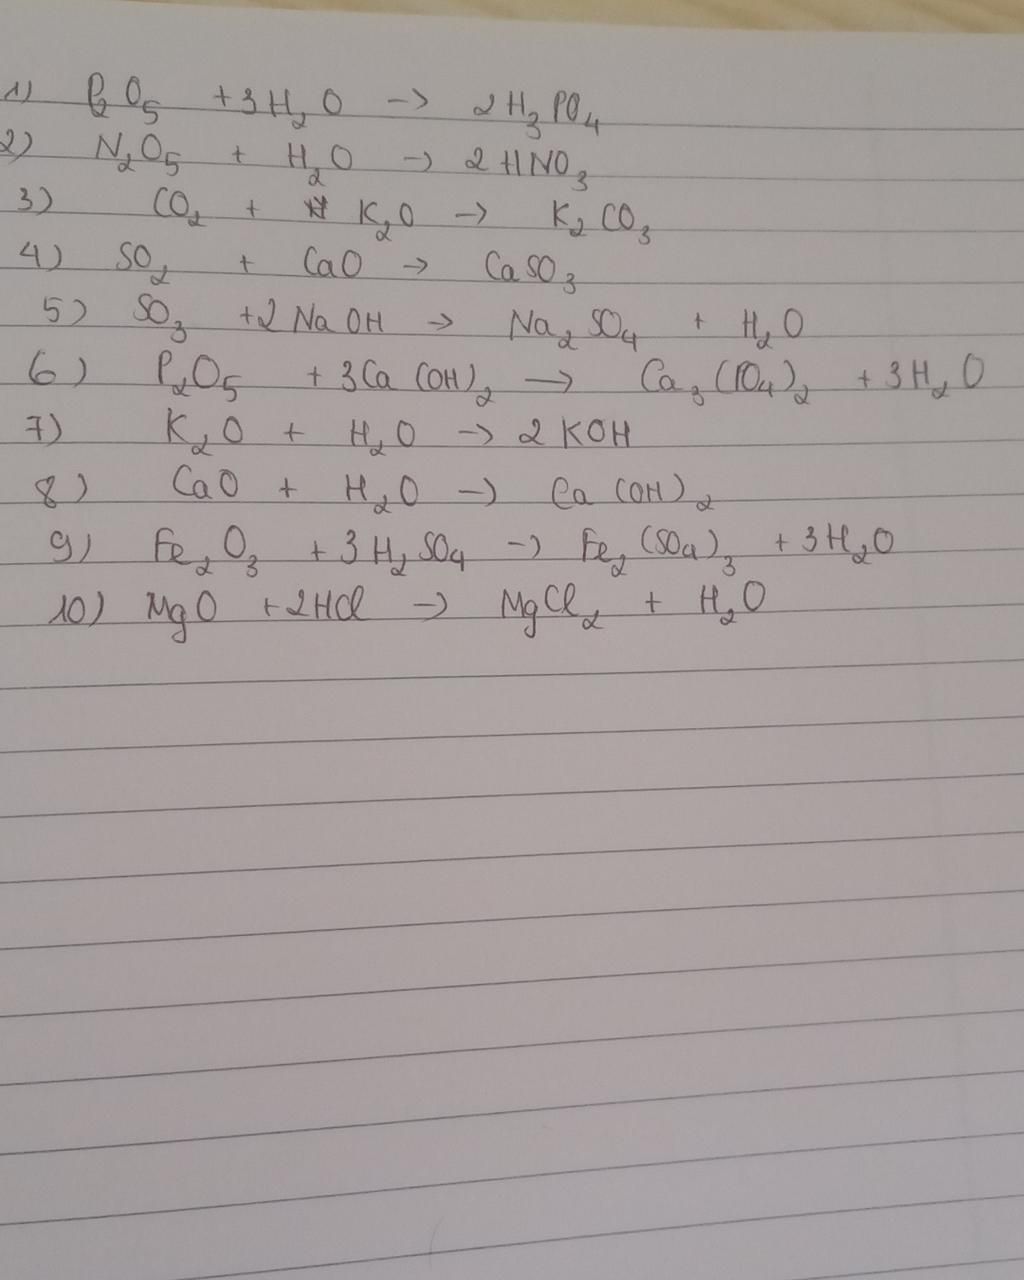 1) P₂O₅ +3H₂O → 2H₃PO₄
2) N₂O₅ + H₂O → 2HNO₃
3) CO₂ + K₂O → K₂CO₃
4) SO₂ + CaO → CaSO₃
5) SO₃ +2NaOH → Na₂SO₄ + H₂O
6) P₂O₅ +3Ca(OH)₂ → Ca₃(PO₄)₂ +3H₂O
7) K₂O + H₂O → 2KOH
8) CaO + H₂O → Ca(OH)₂
9) Fe₂O₃ +3H₂SO₄ → Fe₂(SO₄)₃ +3H₂O
10) MgO +2HCl → MgCl₂ + H₂O